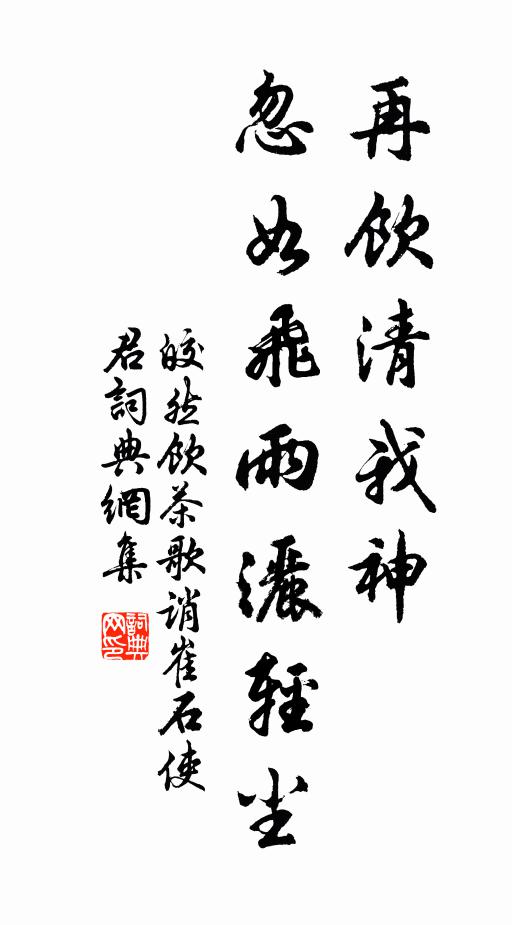 再飲清我神
忽如飛雨灑輕塵
皎然飲茶歌誚崔石使
君詞典網集
詞典网印